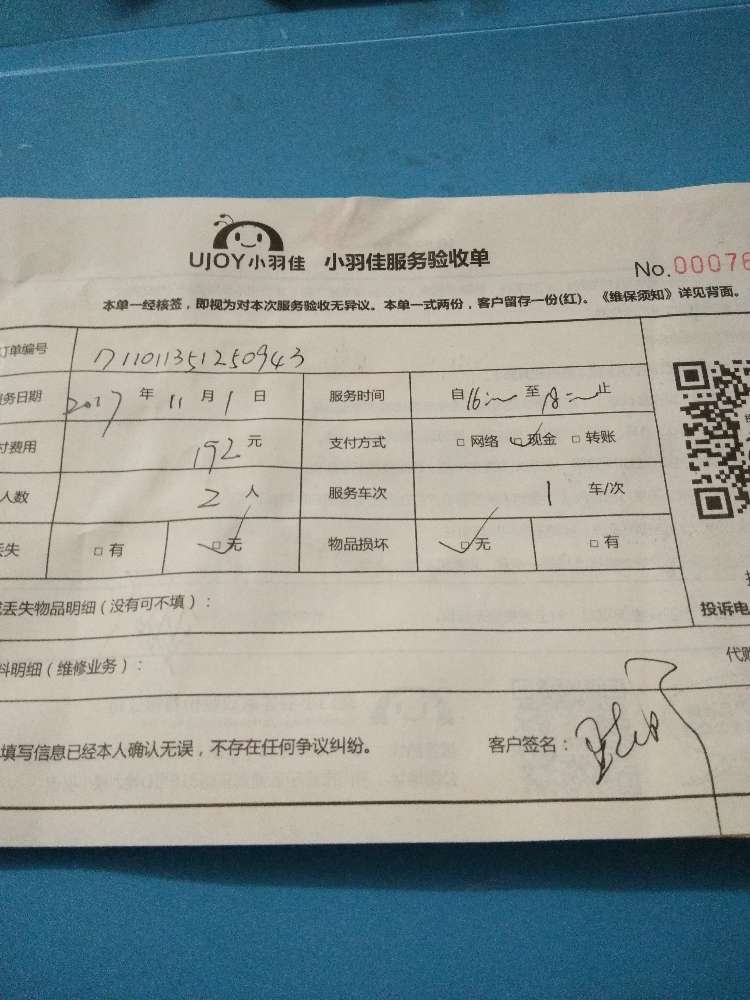 UJOY小羽佳 小羽佳服务验收单
No.00076
本单一经核签，即视为对本次服务验收无异议。本单一式两份，客户留存一份(红)。《维保须知》详见背面。
订单编号 711011351250943
服务日期 2017 年 11 月 1 日 服务时间 自16:00 至 18:00 止
付费用 192 元 支付方式 □ 网络 □ 现金 □ 转账
人数 2 人 服务车次 1 车/次
丢失 □ 有 □ 无 物品损坏 □ 无 □ 有
丢失物品明细（没有可不填）：
投诉电
料明细（维修业务）：
代购
填写信息已经本人确认无误，不存在任何争议纠纷。 客户签名：